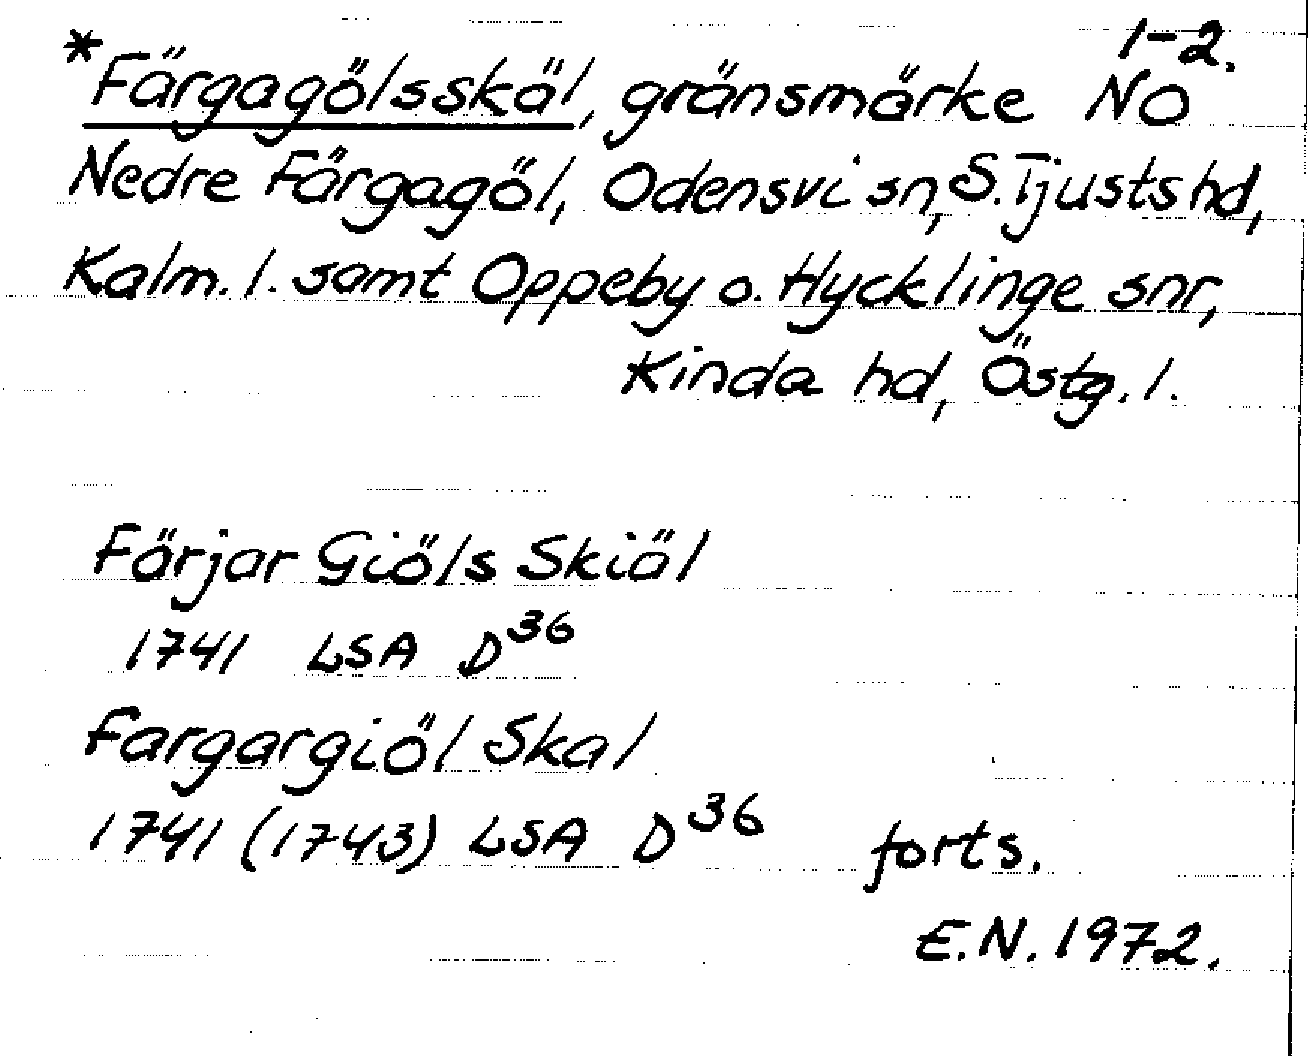 1-2.
*Färgagölsskäl, gränsmärke NO
Nedre Färgagöl, Odensvi sn, S. Tjusts hd,
Kalm. l. samt Oppeby o. Hycklinge snr,
Kinda hd, Östg. l.
Färjar Giöls Skiäl
1741 LSA D³⁶
Fargargiöl Skal
1741 (1743) LSA D³⁶ forts.
E.N. 1972.